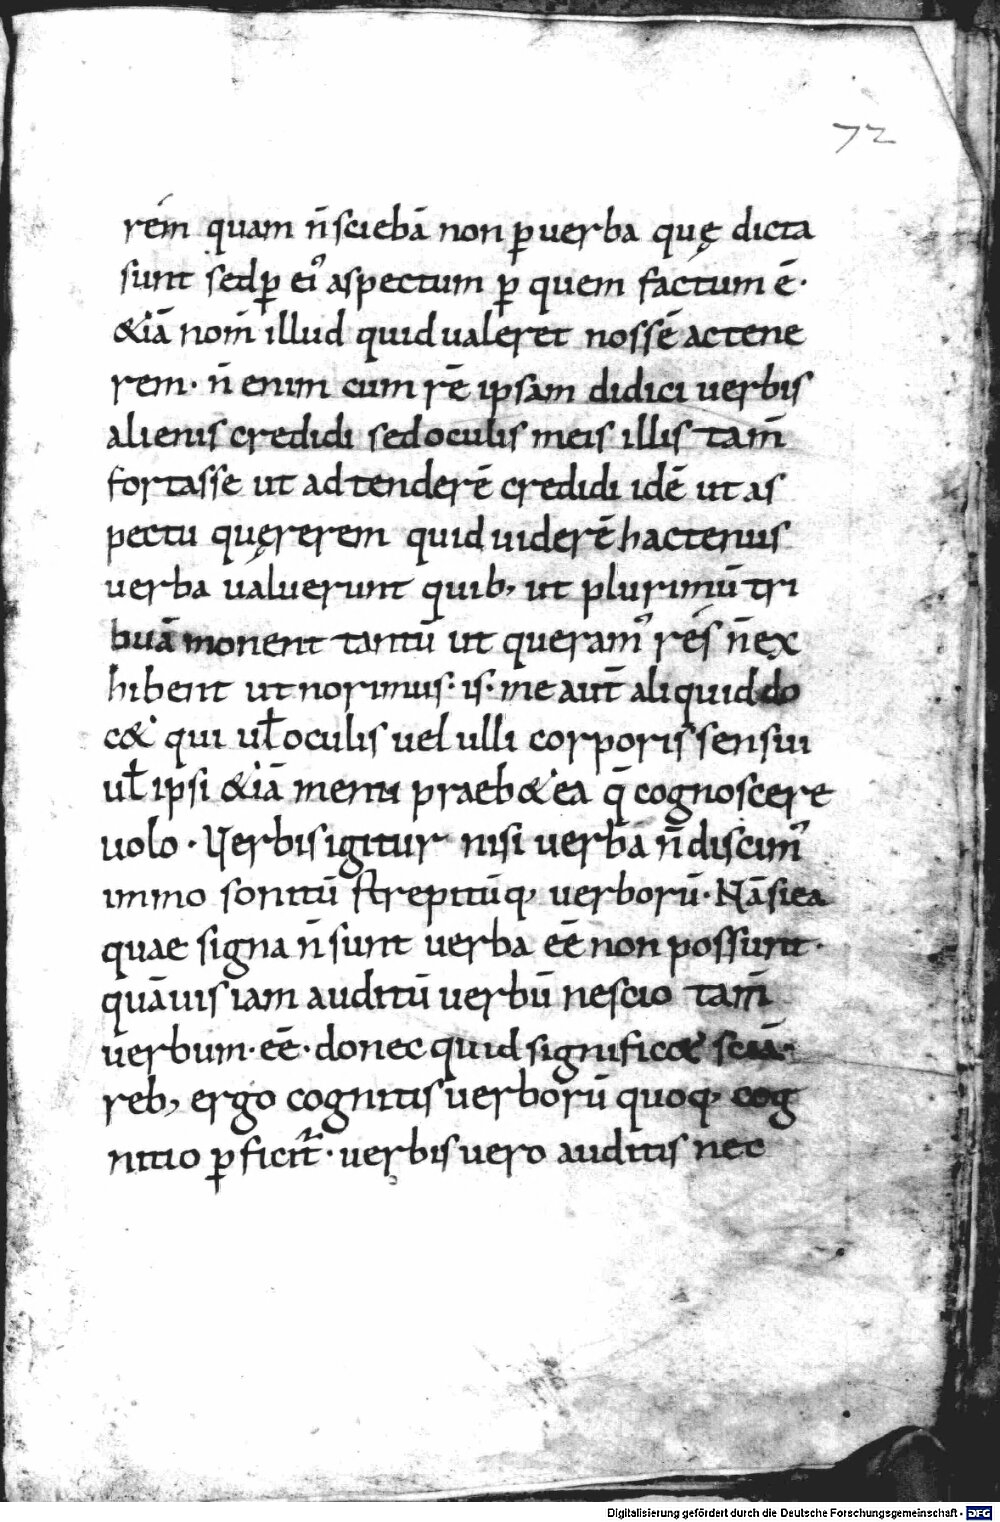 72
rem quam n̄ sciebā non ꝑ uerba quę dicta
sunt sed ꝑ ei᾽ aspectum ꝑ quem factum ē·
&iā nom̄ illud quid ualeret nossē ac tene
rem· n̄ enim cum rē ipsam didici uerbis
alienis credidi sed oculis meis illis tam̄
fortasse ut ad tenderē credidi idē ut as
pectu quęrerem quid uiderē hactenus
uerba ualuerunt quib, ut plurimū tri
buā monent tantū ut queram᾽ res n̄ ex
hibent ut norimus· is· me aut̄ aliquid do
c& qui ul̄ oculis uel ulli corporis sensui
ul̄ ipsi &iā menti praeb& ea q̄ cognoscere
uolo· Verbis igitur nisi uerba n̄ discim᾽
immo sonitū strepitūq, uerborū· Nā si ea
quae signa n̄ sunt uerba eē non possunt·
quāuis iam auditū uerbū nescio tam̄
uerbum· eē· donec quid signific& sciā·
reb, ergo cognitis uerborū quoq, cog
nitio ꝑficit᷑· uerbis uero auditis nec
Digitalisierung gefördert durch die Deutsche Forschungsgemeinschaft - DFG